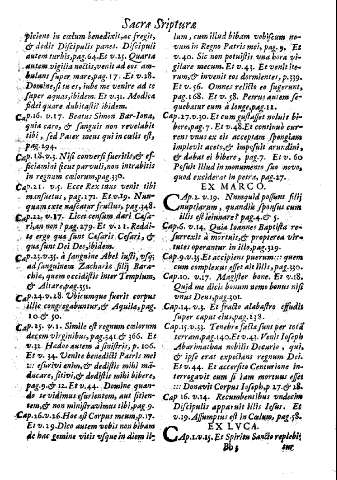 Sacræ Scripturæ
piciens in cælum benedixit, ac fregit,
& dedit Discipulis panes. Discipuli
autem turbis, pag. 64. Et v. 25. Quarta
autem vigilia noctis, venit ad eos am-
bulans super mare, pag. 17. Et v. 28.
Domine, si tu es, iube me venire ad te
super aquas, ibidem. Et v. 31. Modicæ
fidei quare dubitasti? ibidem.
Cap. 16. v. 17. Beatus Simon Bar-Iona,
quia caro, & sanguis non revelabit
tibi, sed Pater meus qui in cælis est,
pag. 294.
Cap. 18. v. 3. Nisi conversi fueritis, & ef-
ficiamini sicut parvuli, non intrabitis
in regnum cælorum, pag. 350.
Cap. 21. v. 5. Ecce Rex tuus venit tibi
mansuetus, pag. 171. Et v. 19. Nun-
quam exte nascatur fructus, pag. 348.
Cap. 22. v. 17. Licet censum dari Cæsa-
ri, an non? pag. 279. Et v. 21. Reddi-
te ergo quæ sunt Cæsaris Cæsari, &
quæ sunt Dei Deo, ibidem.
Cap. 23. v. 35. à sanguine Abel iusti, usq;
ad sanguinem Zachariæ filij Bara-
chiæ, quem occidistis inter Templum,
& Altare, pag. 351.
Cap. 24. v. 28. Ubicumque fuerit corpus
illic congregabuntur, & Aquilæ, pag.
10. & 50.
Cap. 25. v. 1. Simile est regnum cælorum
decem virginibus, pag. 341. & 366. Et
v. 32. Hædos autem à sinistris, p. 106.
Et v. 34. Venite benedicti Patris mei
::: esurivi enim, & dedistis mihi mā-
ducare, sitivi, & dedistis mihi bibere,
pag. 9. & 12. Et v. 44. Domine quan-
do te vidimus esurientem, aut sitien-
tem, & non ministravimus tibi, pag. 9.
Cap. 26. v. 26. Hoc est Corpus meum, p. 17.
Et v. 29. Dico autem vobis non bibam
de hoc genimine vitis usque in diem il-
lum, cum illud bibam vobiscum no-
vum in Regno Patris mei, pag. 9. Et
v. 40. Sic non potuistis una hora vi-
gilare mecum. Et v. 43. Et venit ite-
rum, & invenit eos dormientes, p. 339.
Et v. 56. Omnes relicto eo fugerunt,
pag. 168. Et v. 58. Petrus autem se-
quebatur eum à longe, pag. 11.
Cap. 27. v. 30. Et cum gustasset noluit bi-
bere, pag. 7. Et v. 48. Et continuò cur-
rens unus ex eis acceptam spongiam
implevit aceto, & imposuit arundini,
& dabat ei bibere, pag. 7. Et v. 60
Posuit illud in monumento suo novo,
quod exciderat in petra, pag. 27.
EX MARCO.
CAp. 2. v. 19. Numquid possunt filij
nuptiarum, quandiù sponsus cum
illis est ieiunare? pag. 4. & 5.
Cap. 6. v. 14. Quia Ioannes Baptista re-
surrexit à mortuis, & propterea vir-
tutes operantur in illo, pag. 319.
Cap. 9. v. 35. Et accipiens puerum ::: quem
cum complexus esset ait illis, pag. 350.
Cap. 10. v. 17. Magister bone. Et v. 18.
Quid me dicis bonum nemo bonus nisi
unus Deus, pag. 301.
Cap. 14. v. 3. Et fracto alabastro effudit
super caput eius, pag. 138.
Cap. 15. v. 33. Tenebræ factæ sunt per totā
terram, pag. 140. Et v. 43. Venit Ioseph
Abarimathæa nobilis Decurio, qui,
& ipse erat expectans regnum Dei.
Et v. 44. Et accersito Centurione in-
terrogavit eum si iam mortuus esset
::: Donavit Corpus Ioseph, p. 27. & 28.
Cap. 16. v. 14. Recumbentibus undecim
Discipulis apparuit illis Iesus. Et
v. 19. Assumptus est in Cœlum, pag. 58.
EX LUCA.
CAp. 1. v. 15. Et Spiritu Sancto replebi-
Bb 3 tur